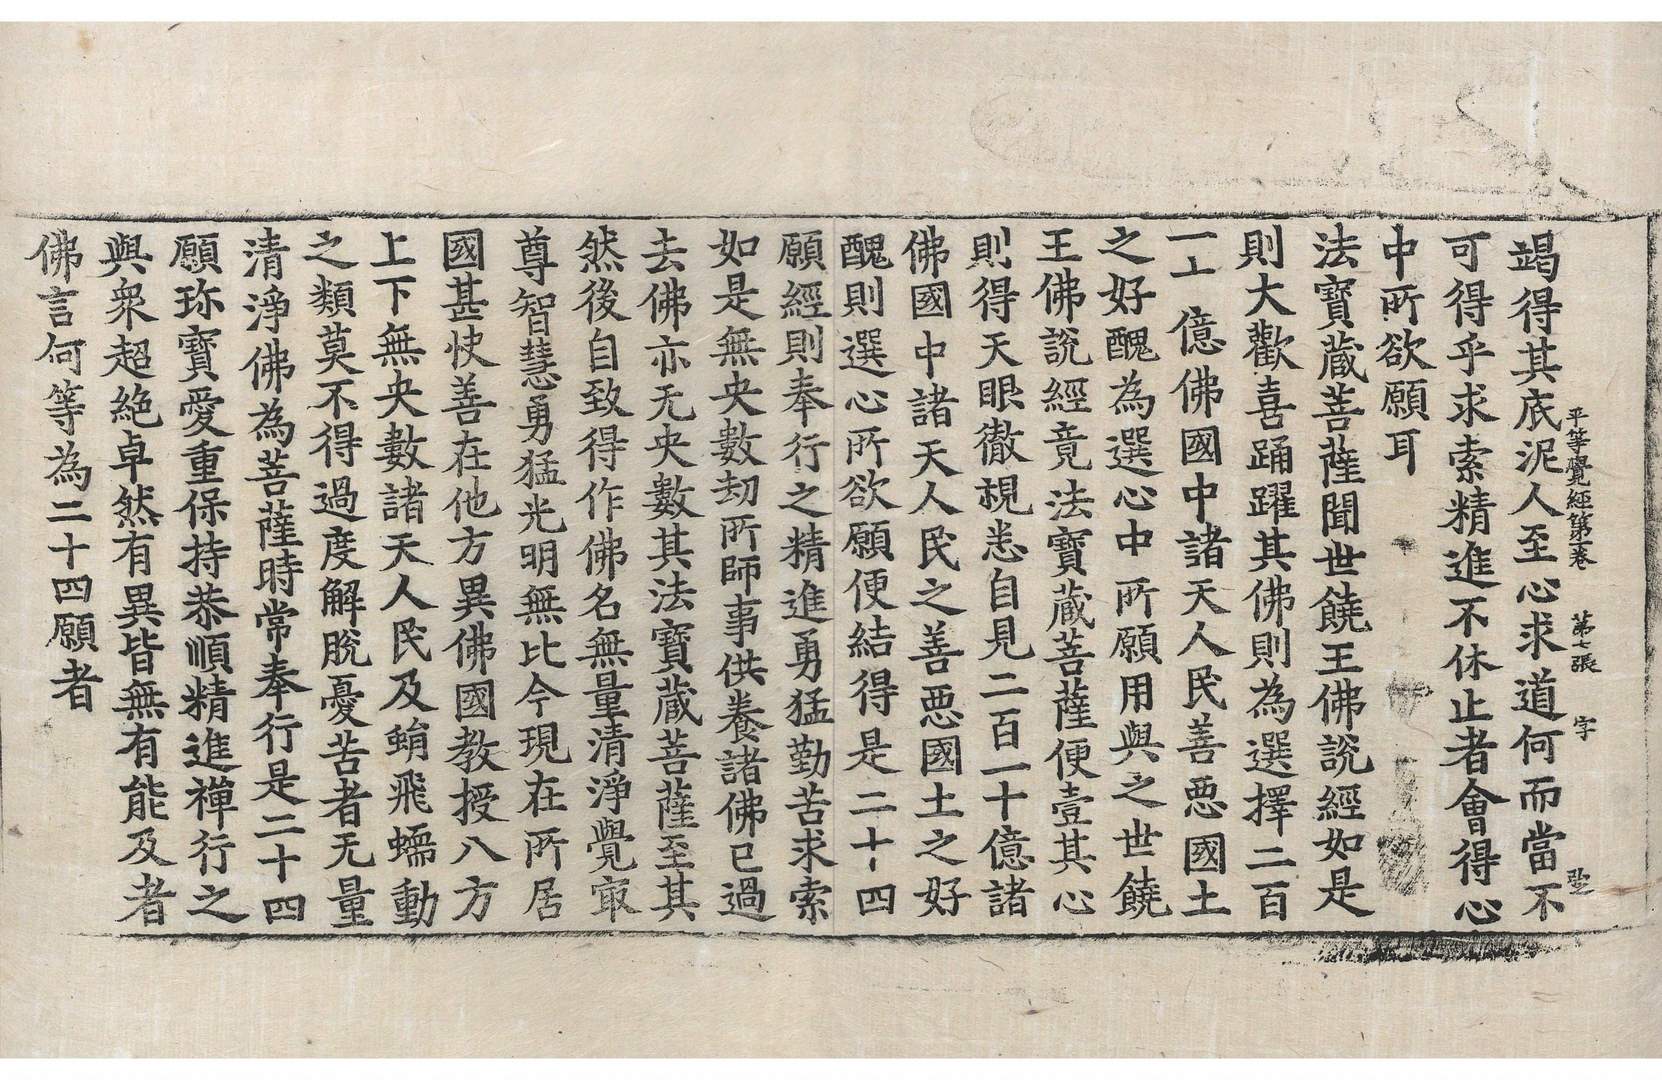 平等覺經第一卷　第七張　字
竭得其底泥人至心求道何而當不
可得乎求索精進不休止者會得心
中所欲願耳
法寶蔵菩薩聞世饒王佛說經如是
則大歡喜踊躍其佛則為選擇二百
一十億佛國中諸天人民善惡國土
之好醜為選心中所願用與之世饒
王佛說經竟法寶蔵菩薩便壹其心
則得天眼徹視悉自見二百一十億諸
佛國中諸天人民之善惡國土之好
醜則選心所欲願便結得是二十四
願經則奉行之精進勇猛勤苦求索
如是無央數劫所師事供養諸佛已過
去佛亦无央數其法寶蔵菩薩至其
然後自致得作佛名無量清淨覺㝡
尊智慧勇猛光明無比今現在所居
國甚快善在他方異佛國教授八方
上下無央數諸天人民及蜎飛蠕動
之類莫不得過度解脫憂苦者无量
清淨佛為菩薩時常奉行是二十四
願珎寶愛重保持恭順精進禪行之
與衆超絶卓然有異皆無有能及者
佛言何等為二十四願者